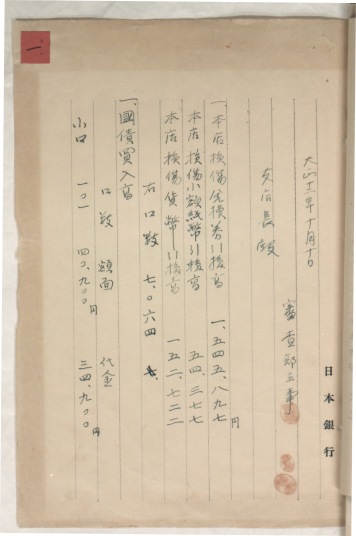 一
大正十三年十月十日
審査部主事
支店長殿
一、本店損傷兌換券引換高 一、五四五、八九七円
本店損傷小額紙幣引換高 五四、三七七
本店損傷貨幣引換高 一五二、七二二
右口数 七、〇六四
一、國債買入高
口数 額面 代金
小口 一〇一 四〇、九〇〇円 三四、九〇〇円
日本銀行